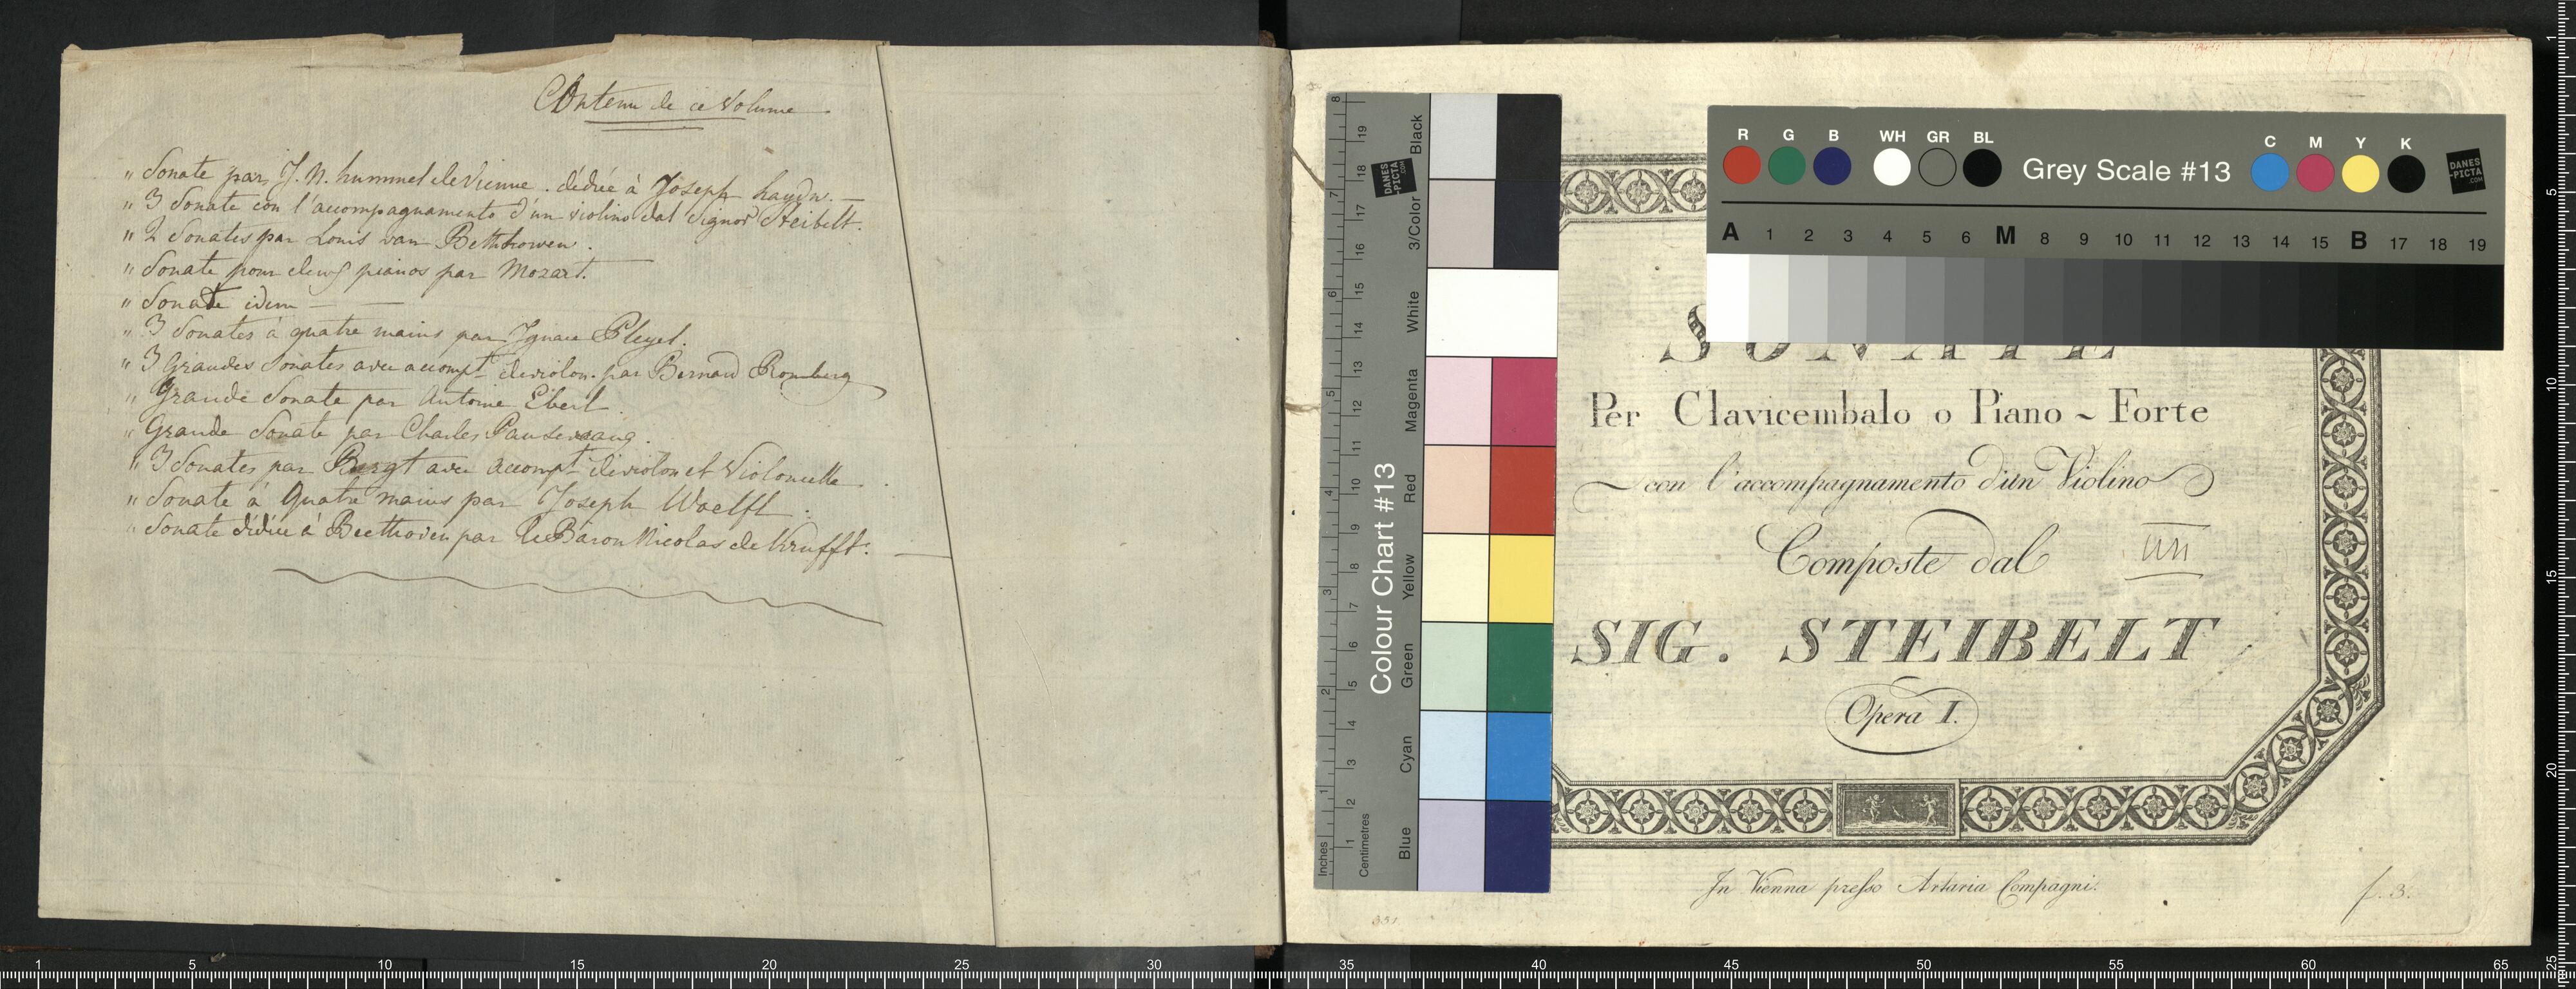 Contenu de ce Volume
" Sonate par J. N. hummel de Vienne. dédiée à Joseph haydn. —
" 3 Sonate con l'accompagnamento d'un violino dal Signor Steibelt.
" 2 Sonates par Louis van Bethhowen.
" Sonate pour deux pianos par Mozart. —
" Sonate idem — —
" 3 Sonates à quatre mains par Ignace Pleyel.
" 3 Grandes Sonates avec accompt de violon par Bernard Romberg
" Grande Sonate par Antoine Eberl
" Grande Sonate par Charles
" 3 Sonates par avec accompt de violon et Violoncelle
" Sonate à Quatre mains par Joseph Woelfl.
" Sonate dédiée à Beethoven par le Baron Nicolas de Krufft. —
SONATE
Per Clavicembalo o Piano ~ Forte
con l'accompagnamento d'un Violino
Composte dal
SIG. STEIBELT
Opera I.
In Vienna presso Artaria Compagni.
f. 3.
331
Colour Chart #13
Black
3/Color
White
Magenta
Red
Yellow
Green
Cyan
Blue
Inches
1 2 3 4 5 6 7 8
Centimetres
1 2 3 4 5 6 7 8 9 10 11 12 13 14 15 16 17 18 19
DANES
-PICTA
.COM
R G B WH GR BL Grey Scale #13 C M Y K
DANES
-PICTA
.COM
A 1 2 3 4 5 6 M 8 9 10 11 12 13 14 15 B 17 18 19
1 5 10 15 20 25 30 35 40 45 50 55 60 65
1 5 10 15 20 25